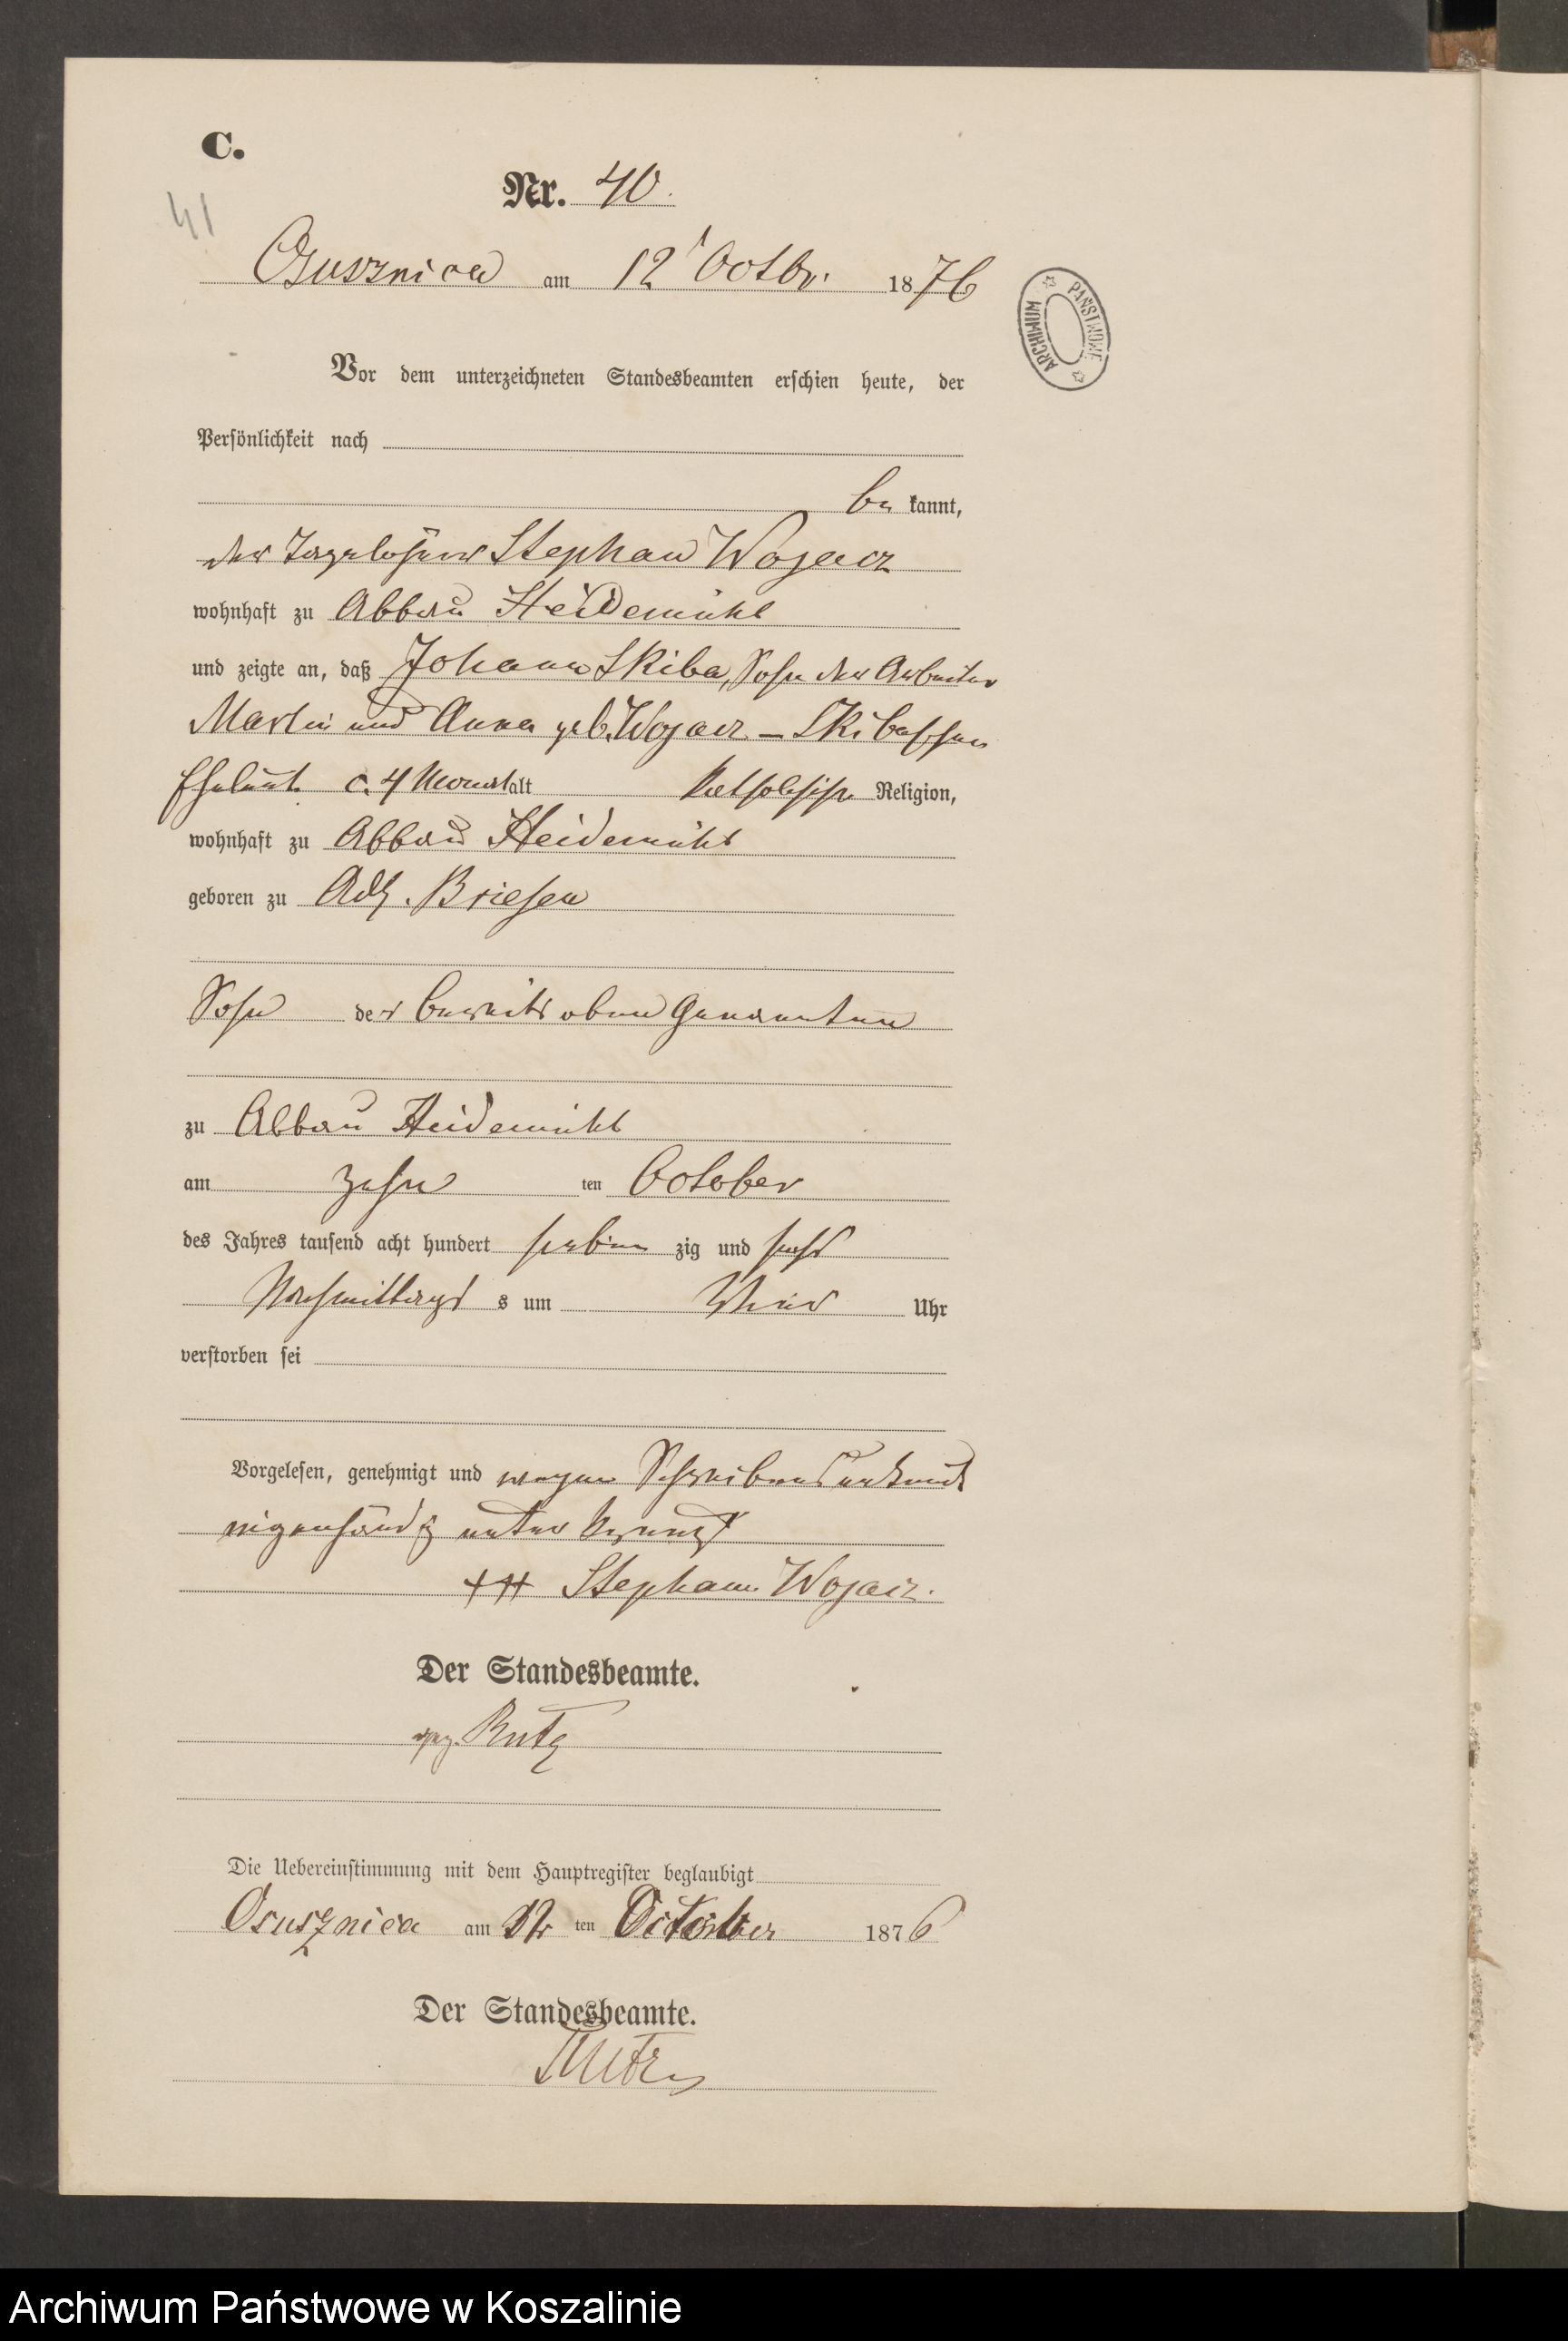 C.
Nr. 40.
41
Osusznica am 12 Octbr. 1876
ARCHIWUM PAŃSTWOWE
Vor dem unterzeichneten Standesbeamten erschien heute, der
Persönlichkeit nach
be kannt,
der Tagelöhner Stephan Wojacz
wohnhaft zu Abbau Heidemühl
und zeigte an, daß Johann Skiba, Sohn der Arbeiter
Martin und Anna geb. Wojacz – Skibaschen
Eheleute c. 4 Monat alt katholische Religion,
wohnhaft zu Abbau Heidemühl
geboren zu Adl. Briesen
Sohn der bereits oben Genannten
zu Abbau Heidemühl
am zehn ten October
des Jahres tausend acht hundert sieben zig und sechs
Nachmittags s um Uhr
verstorben sei
Vorgelesen, genehmigt und wegen Schreibensunkunde
eigenhändig unterkreuzt
+++ Stephan Wojacz.
Der Standesbeamte.
gez. Rutz
Die Uebereinstimmung mit dem Hauptregister beglaubigt
Osusznica am 12 ten October 1876
Der Standesbeamte.
Rutz
Archiwum Państwowe w Koszalinie